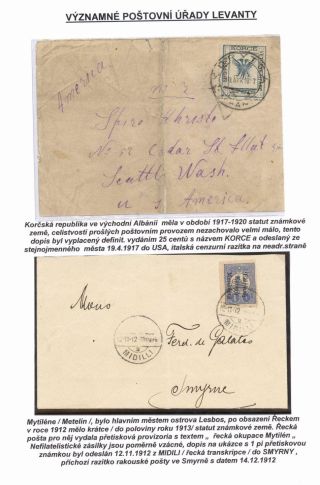 VÝZNAMNÉ POŠTOVNÍ ÚŘADY LEVANTY
America
KORCE
Mr
Spiro Khristo
No 52 Cedar St. Flat
Seattl Wash.
U S America.
Korčská republika ve východní Albánii měla v období 1917-1920 statut známkové
země, celistvostí prošlých poštovním provozem nezachovalo velmi málo, tento
dopis byl vyplacený definit. vydáním 25 centů s názvem KORCE a odeslaný ze
stejnojmenného města 19.4.1917 do USA, italská cenzurní razítka na neadr.straně
Mons
MIDILLI
Ferd. de Galatas
Smyrne
Mytiléne / Metelin /, bylo hlavním městem ostrova Lesbos, po obsazení Řeckem
v roce 1912 mělo krátce / do poloviny roku 1913/ statut známkové země. Řecká
pošta pro něj vydala přetisková provizoria s textem „ řecká okupace Mytilén „
Nefilatelistické zásilky jsou poměrně vzácné, dopis na ukázce s 1 pi přetiskovou
známkou byl odeslán 12.11.1912 z MIDILI / řecká transkripce / do SMYRNY ,
příchozí razítko rakouské pošty ve Smyrně s datem 14.12.1912